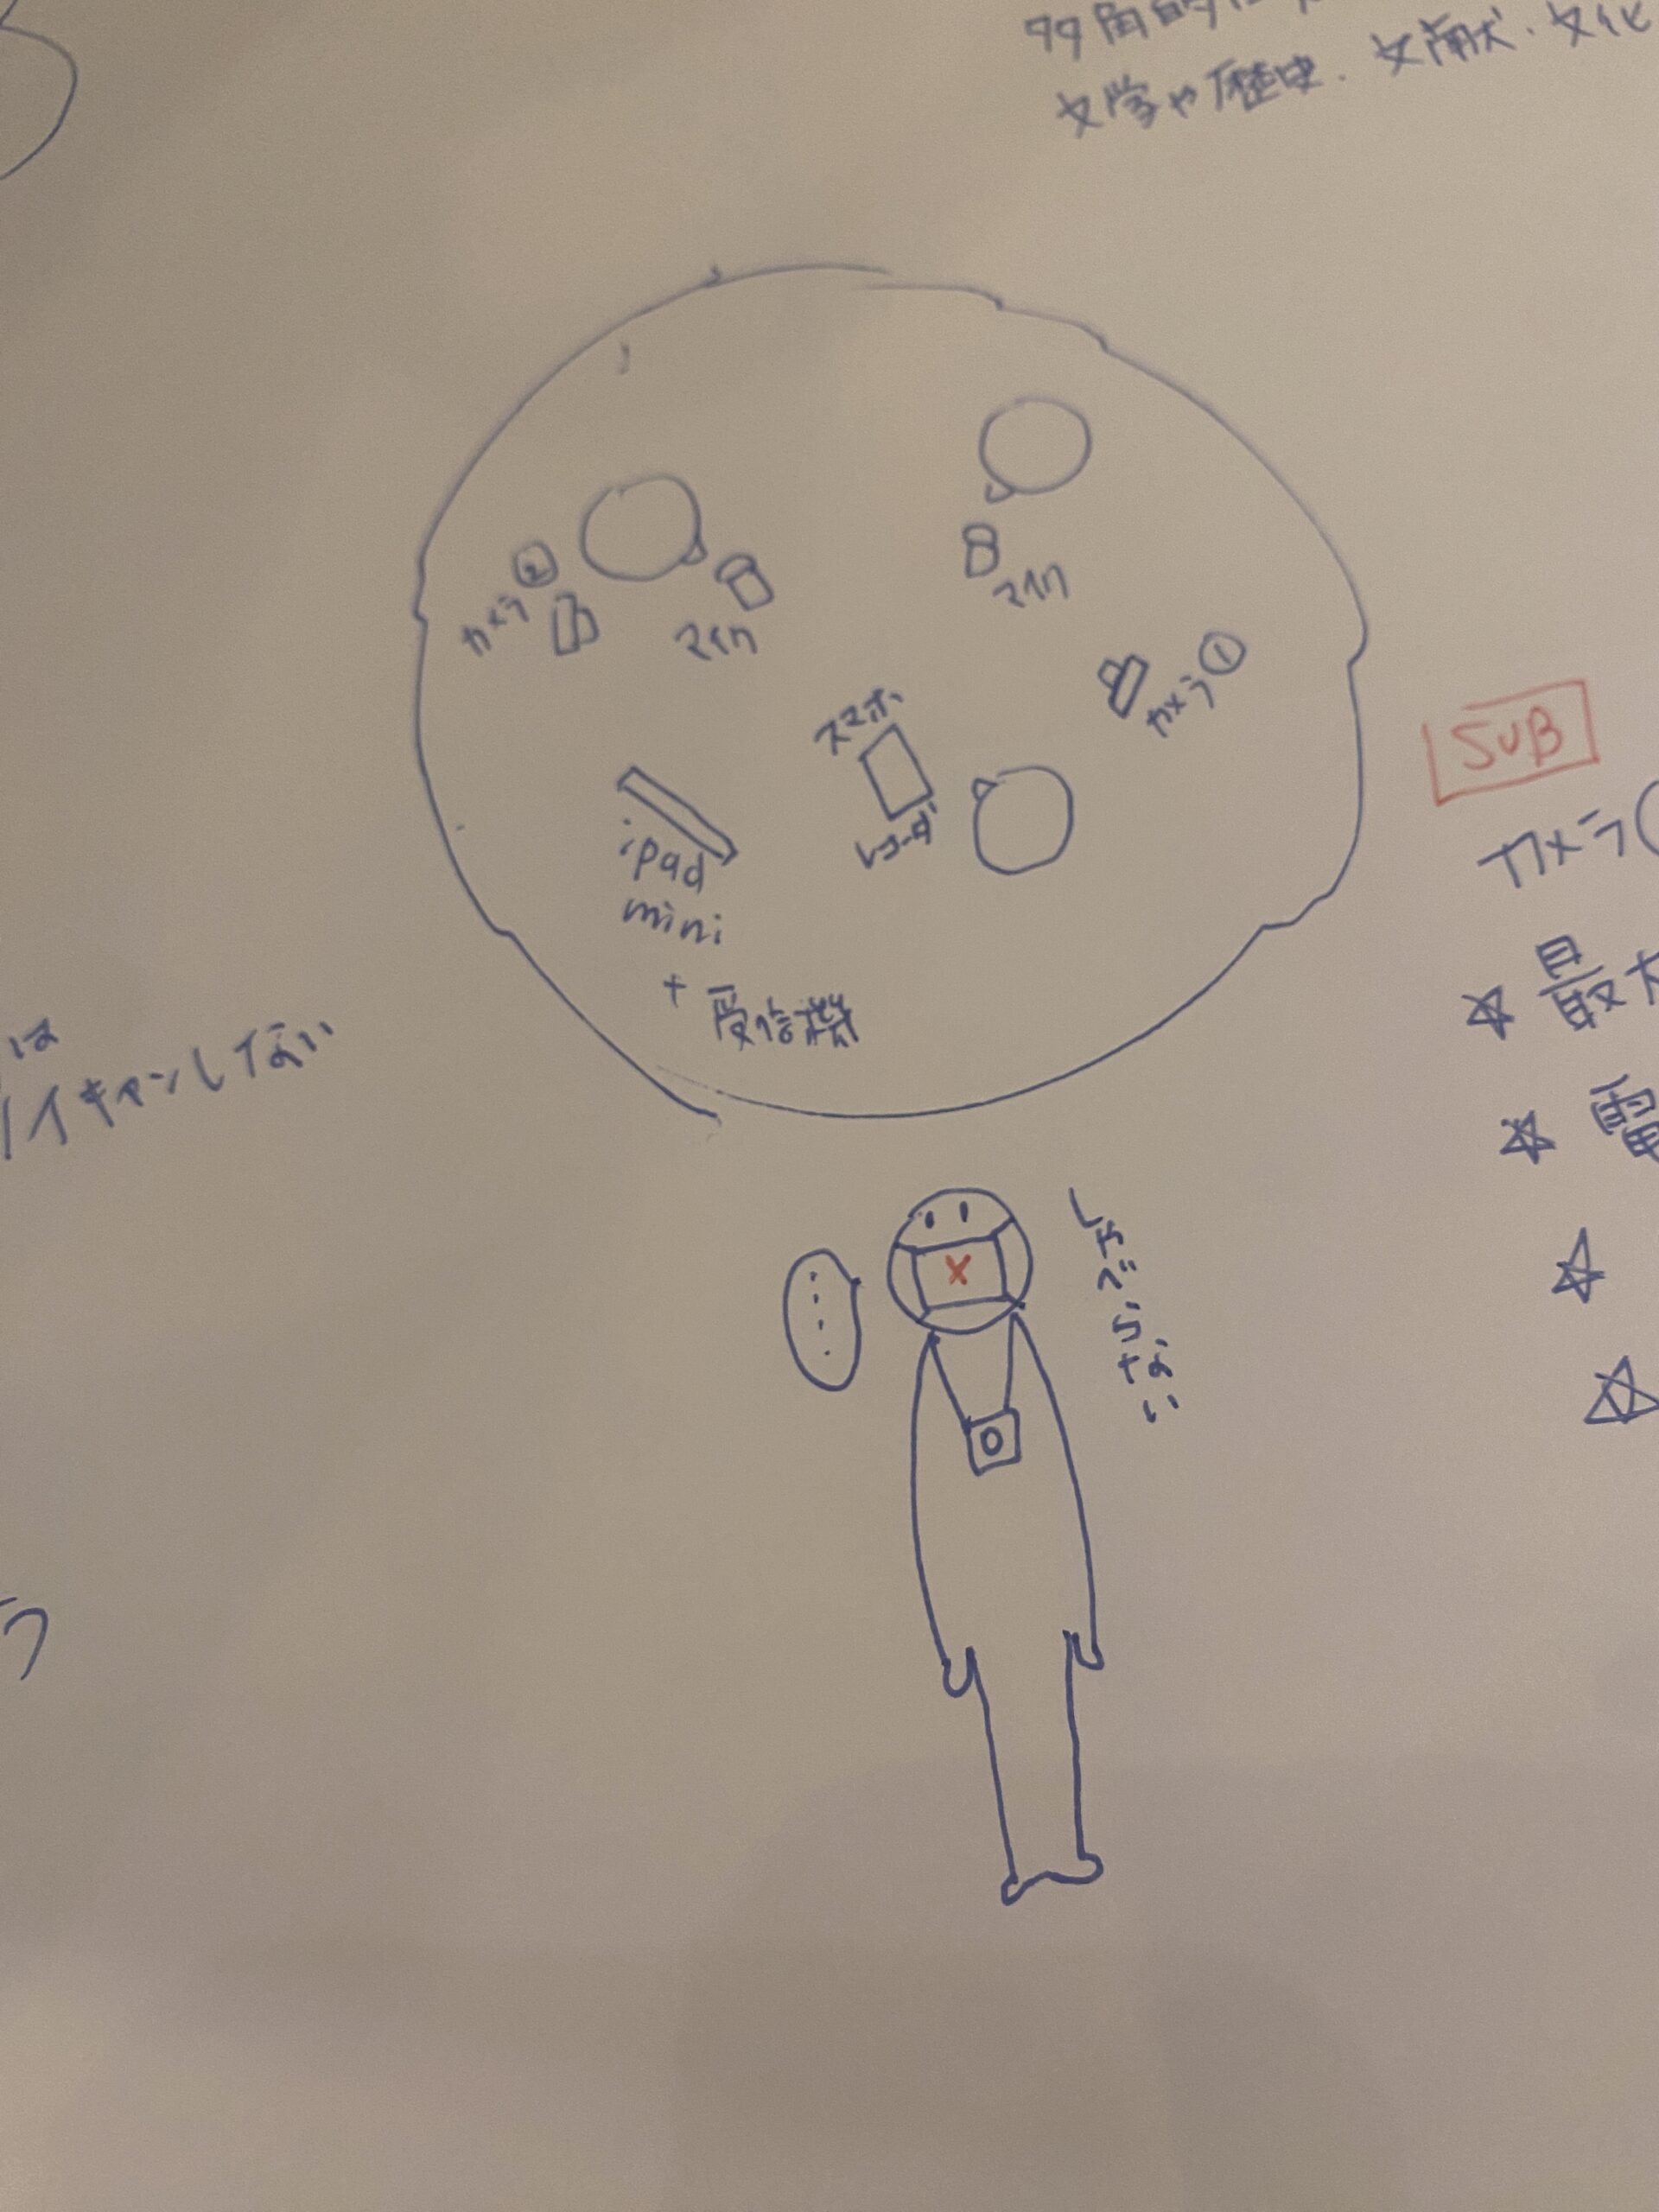 文学や歴史.文献.文化
カメラ②
マイク
マイク
カメラ①
スマホ
レコーダ
ipad
mini
+ 受信機
SUB
カメラ
は
ノイキャンしない
☆最
☆電
☆
☆
しゃべらない
×
う